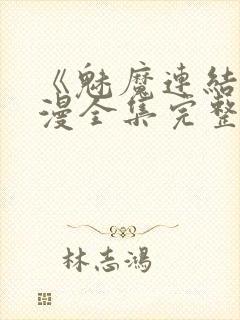 《魅魔連結
漫全集完整
林志鴻